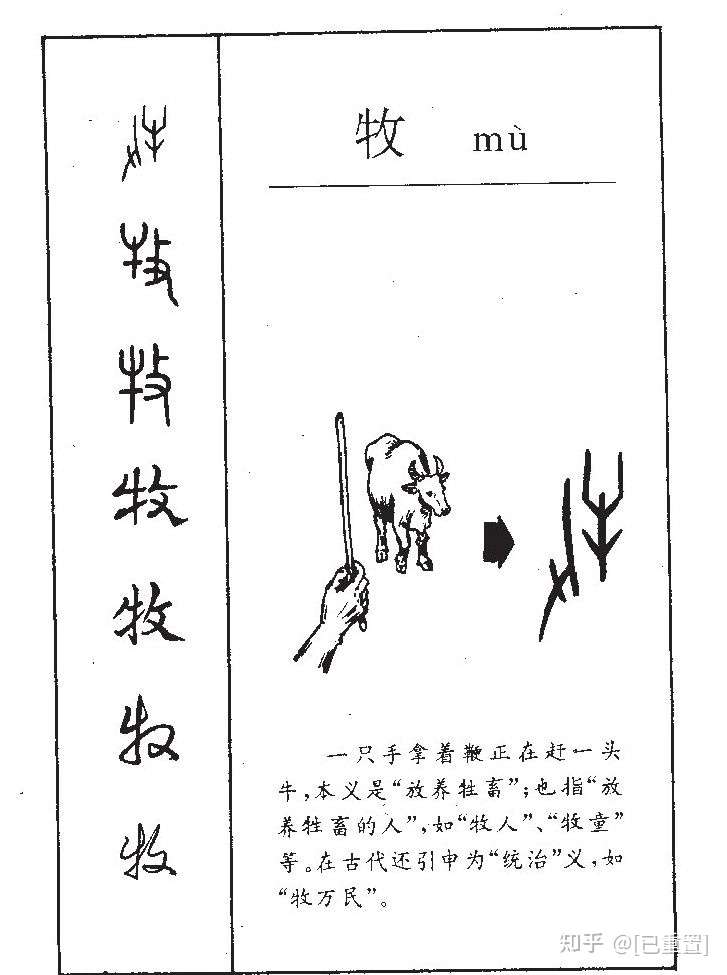 牧 mù
牧
牧
牧
牧
牧
牧
牧
一只手拿着鞭正在赶一头
牛，本义是“放养牲畜”；也指“放
养牲畜的人”，如“牧人”、“牧童”
等。在古代还引申为“统治”义，如
“牧万民”。
知乎 @[已重置]